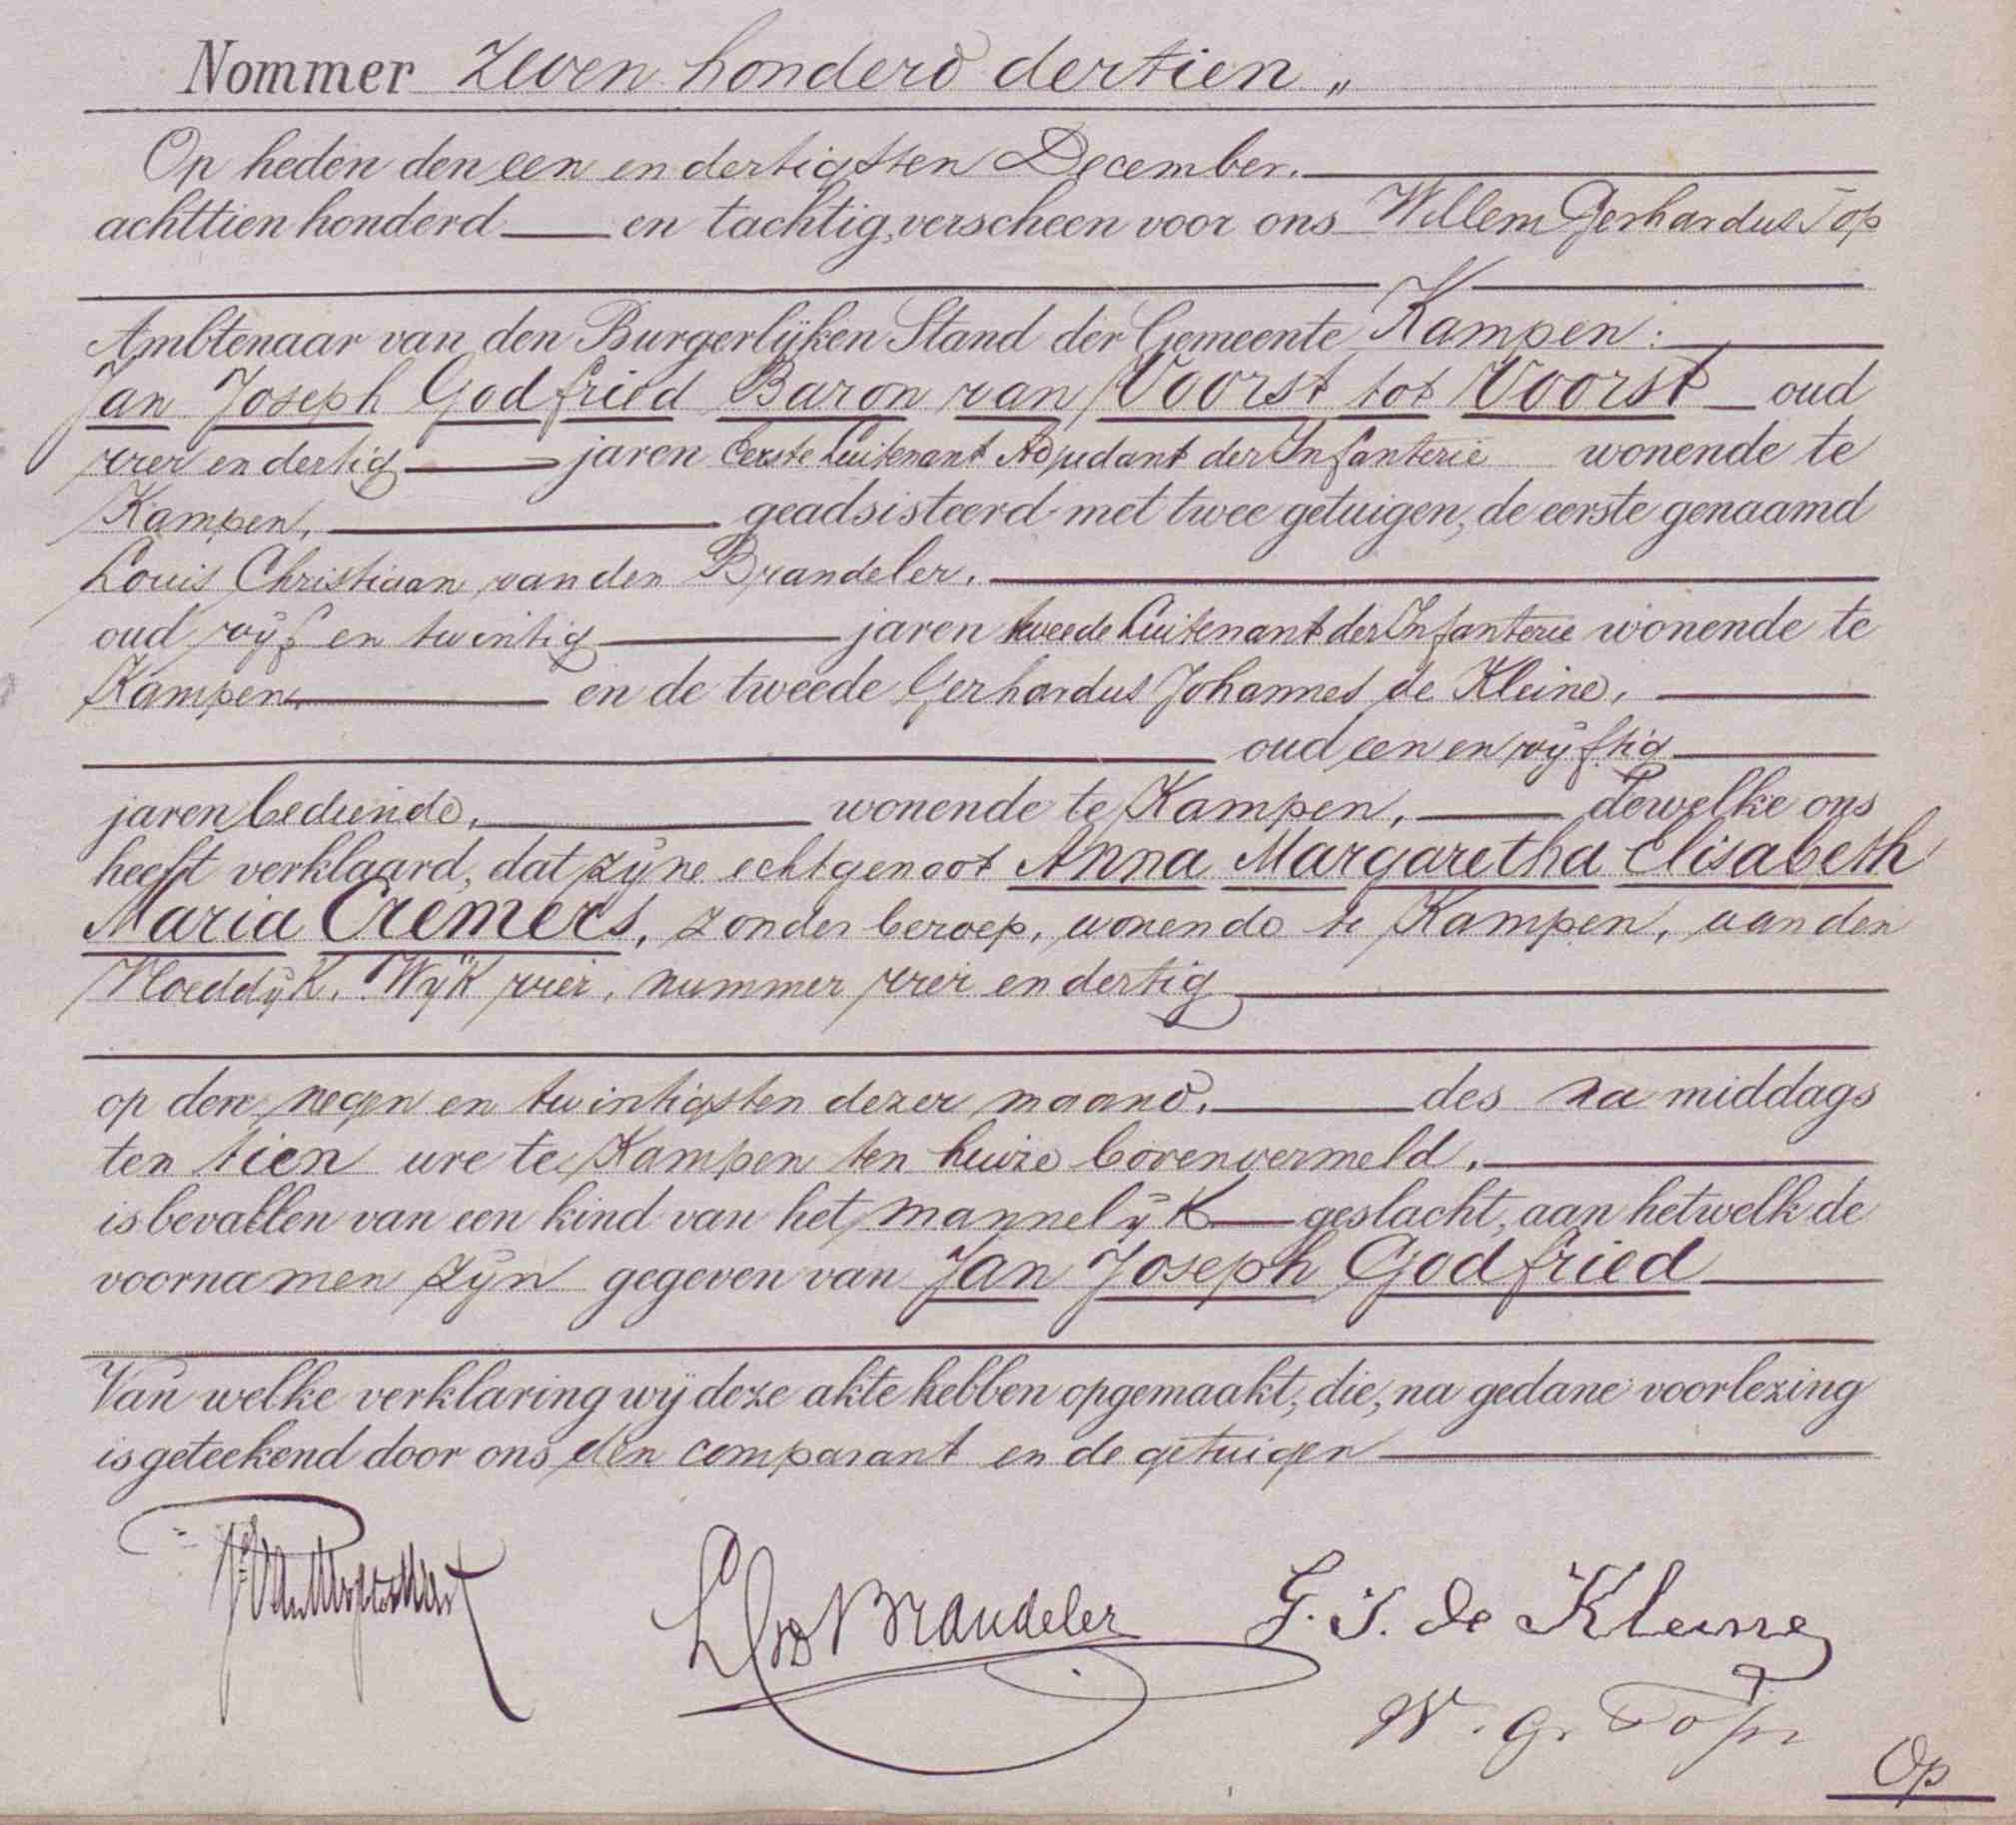 Nommer zeven honderd dertien „
Op heden den een en dertigsten December.
achttien honderd en tachtig, verscheen voor ons Willem Gerhardus Top
Ambtenaar van den Burgerlijken Stand der Gemeente Kampen:
Jan Joseph Godfried Baron van Voorst tot Voorst oud
vier en dertig jaren Eerste Luitenant Adjudant der Infanterie wonende te
Kampen, geadsisteerd met twee getuigen, de eerste genaamd
Louis Christiaan van den Brandeler.
oud vijf en twintig jaren tweede Luitenant der Infanterie wonende te
Kampen, en de tweede Gerhardus Johannes de Kleine,
oud een en vijftig
jaren bediende, wonende te Kampen, dewelke ons
heeft verklaard, dat zijne echtgenoot Anna Margaretha Elisabeth
Maria Cremers, zonder beroep, wonende te Kampen, aan den
Vloeddijk, Wijk vier, nummer vier en dertig
op den negen en twintigsten dezer maand, des na middags
ten tien ure te Kampen ten huize bovenvermeld,
is bevallen van een kind van het mannelijk geslacht, aan hetwelk de
voornamen zijn gegeven van Jan Joseph Godfried
Van welke verklaring wij deze akte hebben opgemaakt, die, na gedane voorlezing
is geteekend door ons den comparant en de getuigen
LC vd Brandeler G. J. de Kleine
W. G. Top
Op